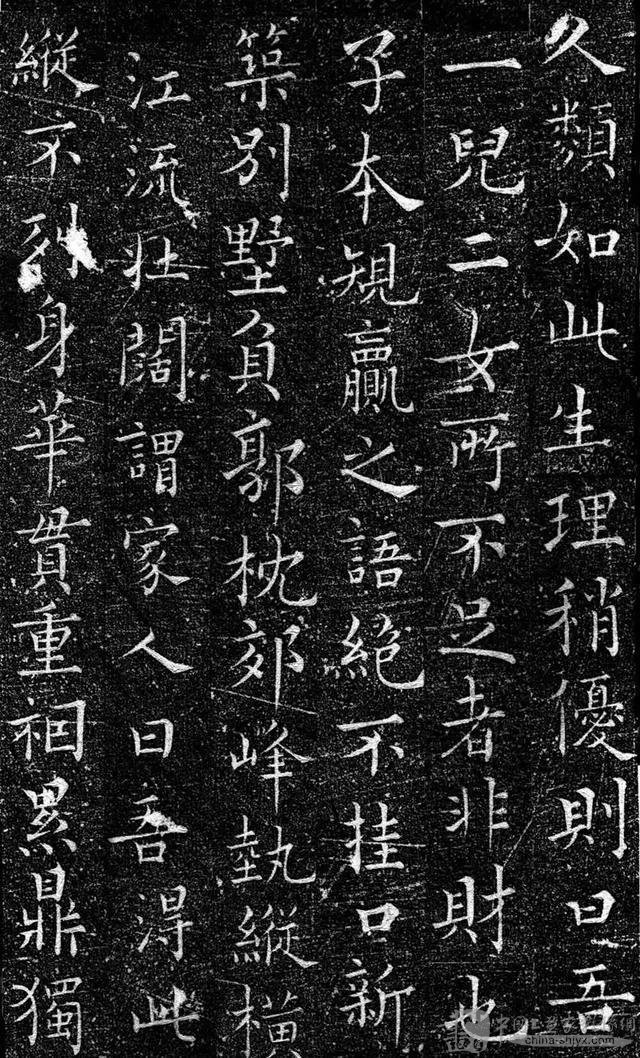 久類如此生理稍優則曰吾
一兒二女所不足者非財也
子本規贏之語絶不挂口新
築别墅負郭枕郊峰埶縱橫
江流壯闊謂家人曰吾得此
縱不到身華貫重裀累鼎獨
china-shjyx.com